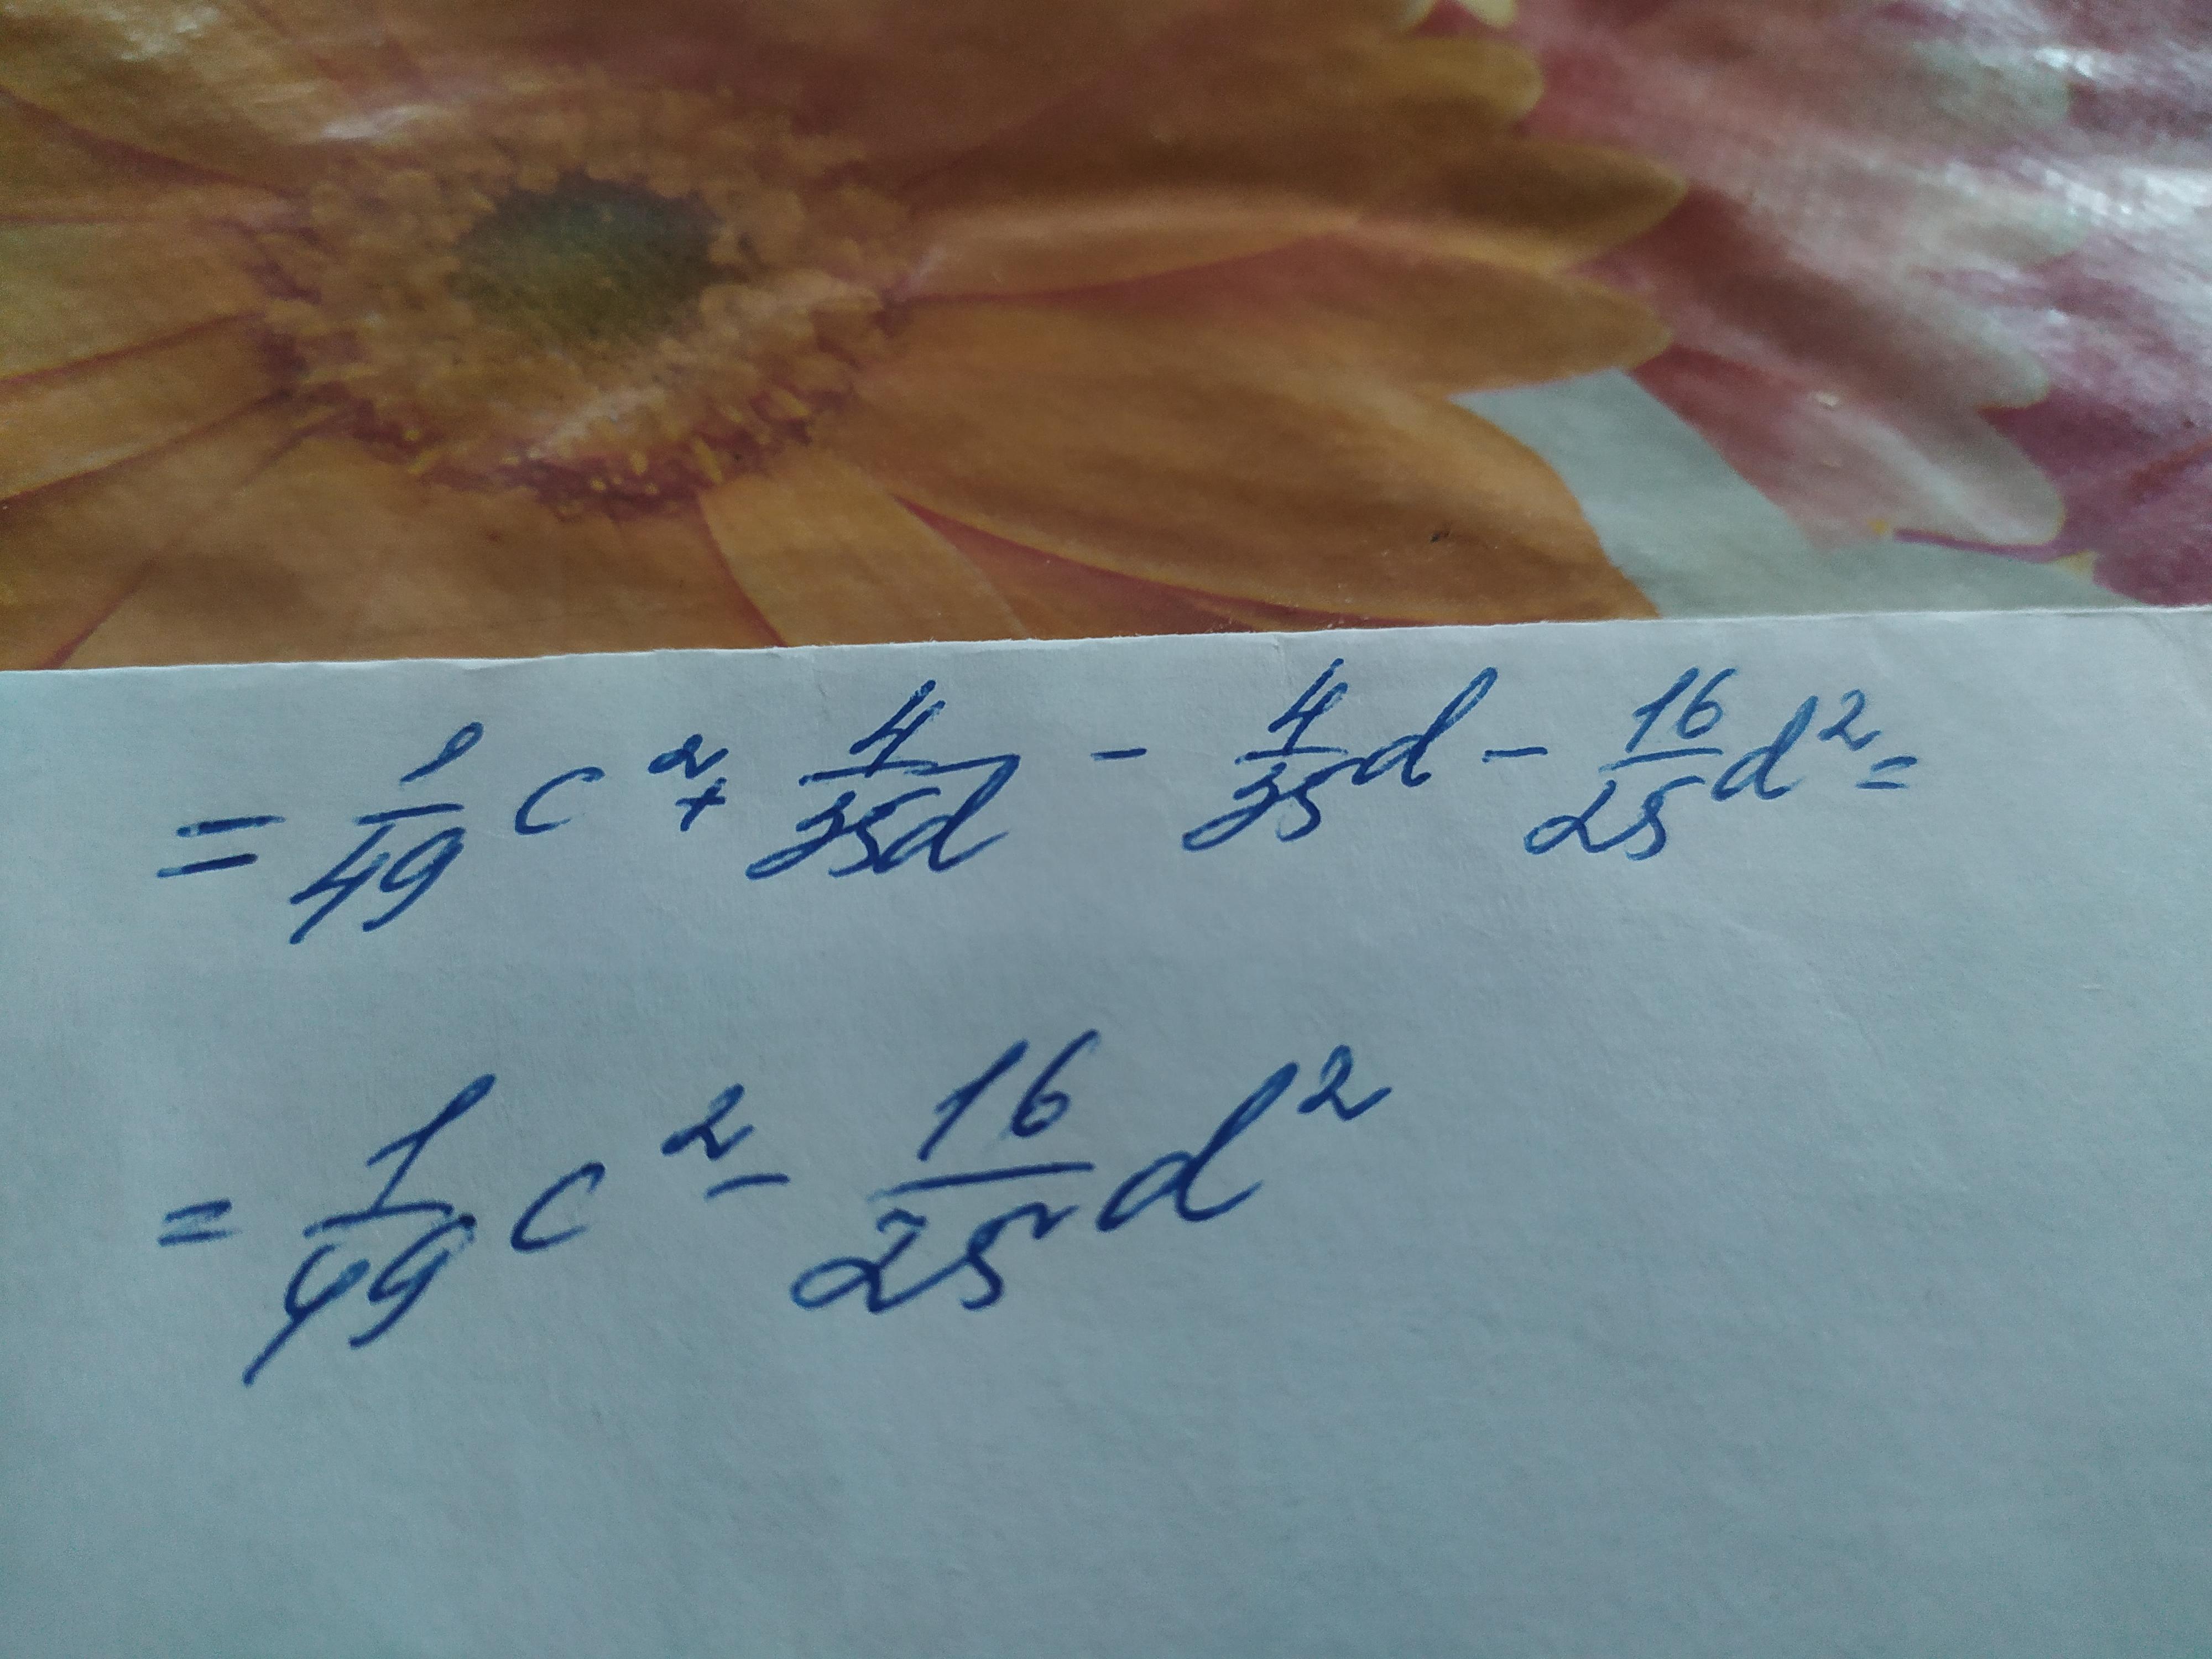 = 1/49 c² + 4/35d - 4/35 d - 16/25 d² =
= 1/49 c² - 16/25 d²